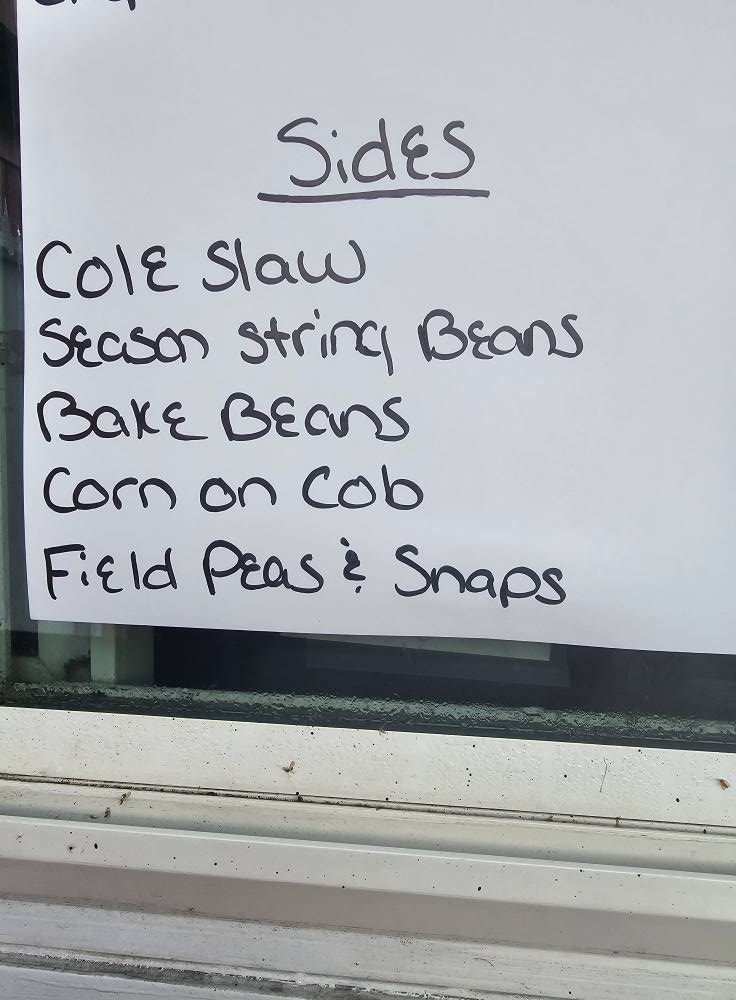 Sides
Cole Slaw
Season String Beans
Bake Beans
Corn on Cob
Field Peas & Snaps